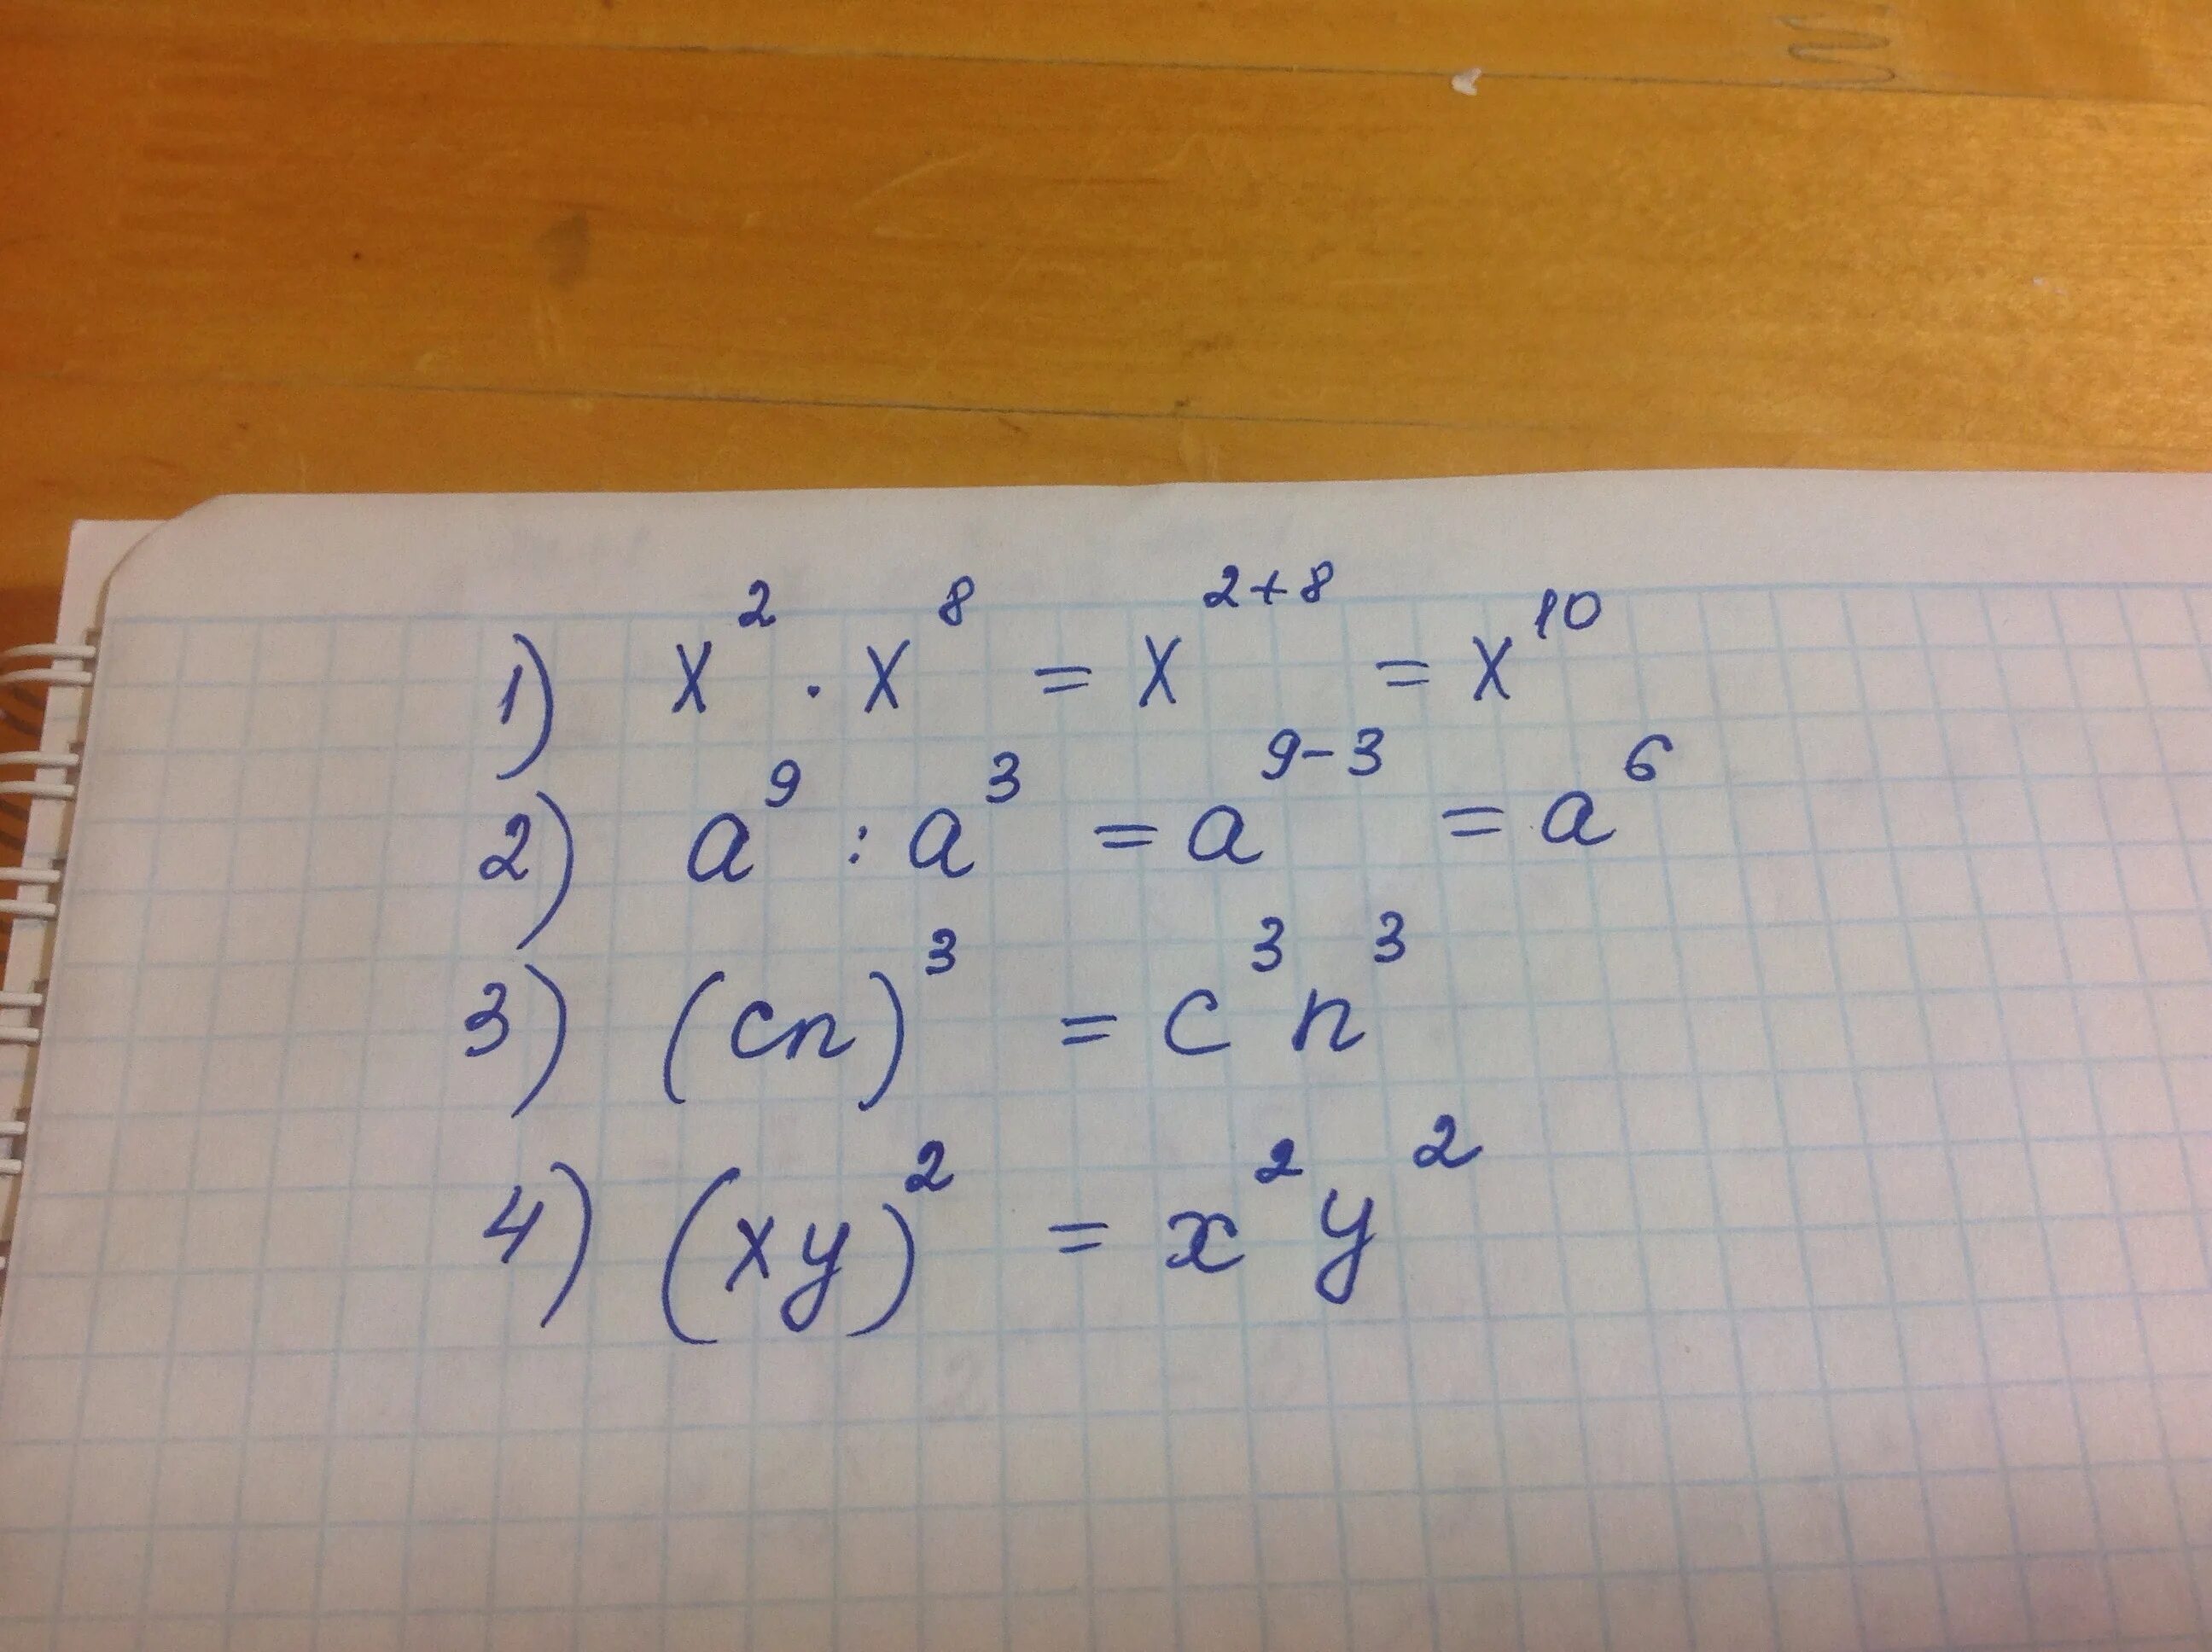 1) x² · x⁸ = x²⁺⁸ = x¹⁰
2) a⁹ : a³ = a⁹⁻³ = a⁶
3) (cn)³ = c³n³
4) (xy)² = x²y²